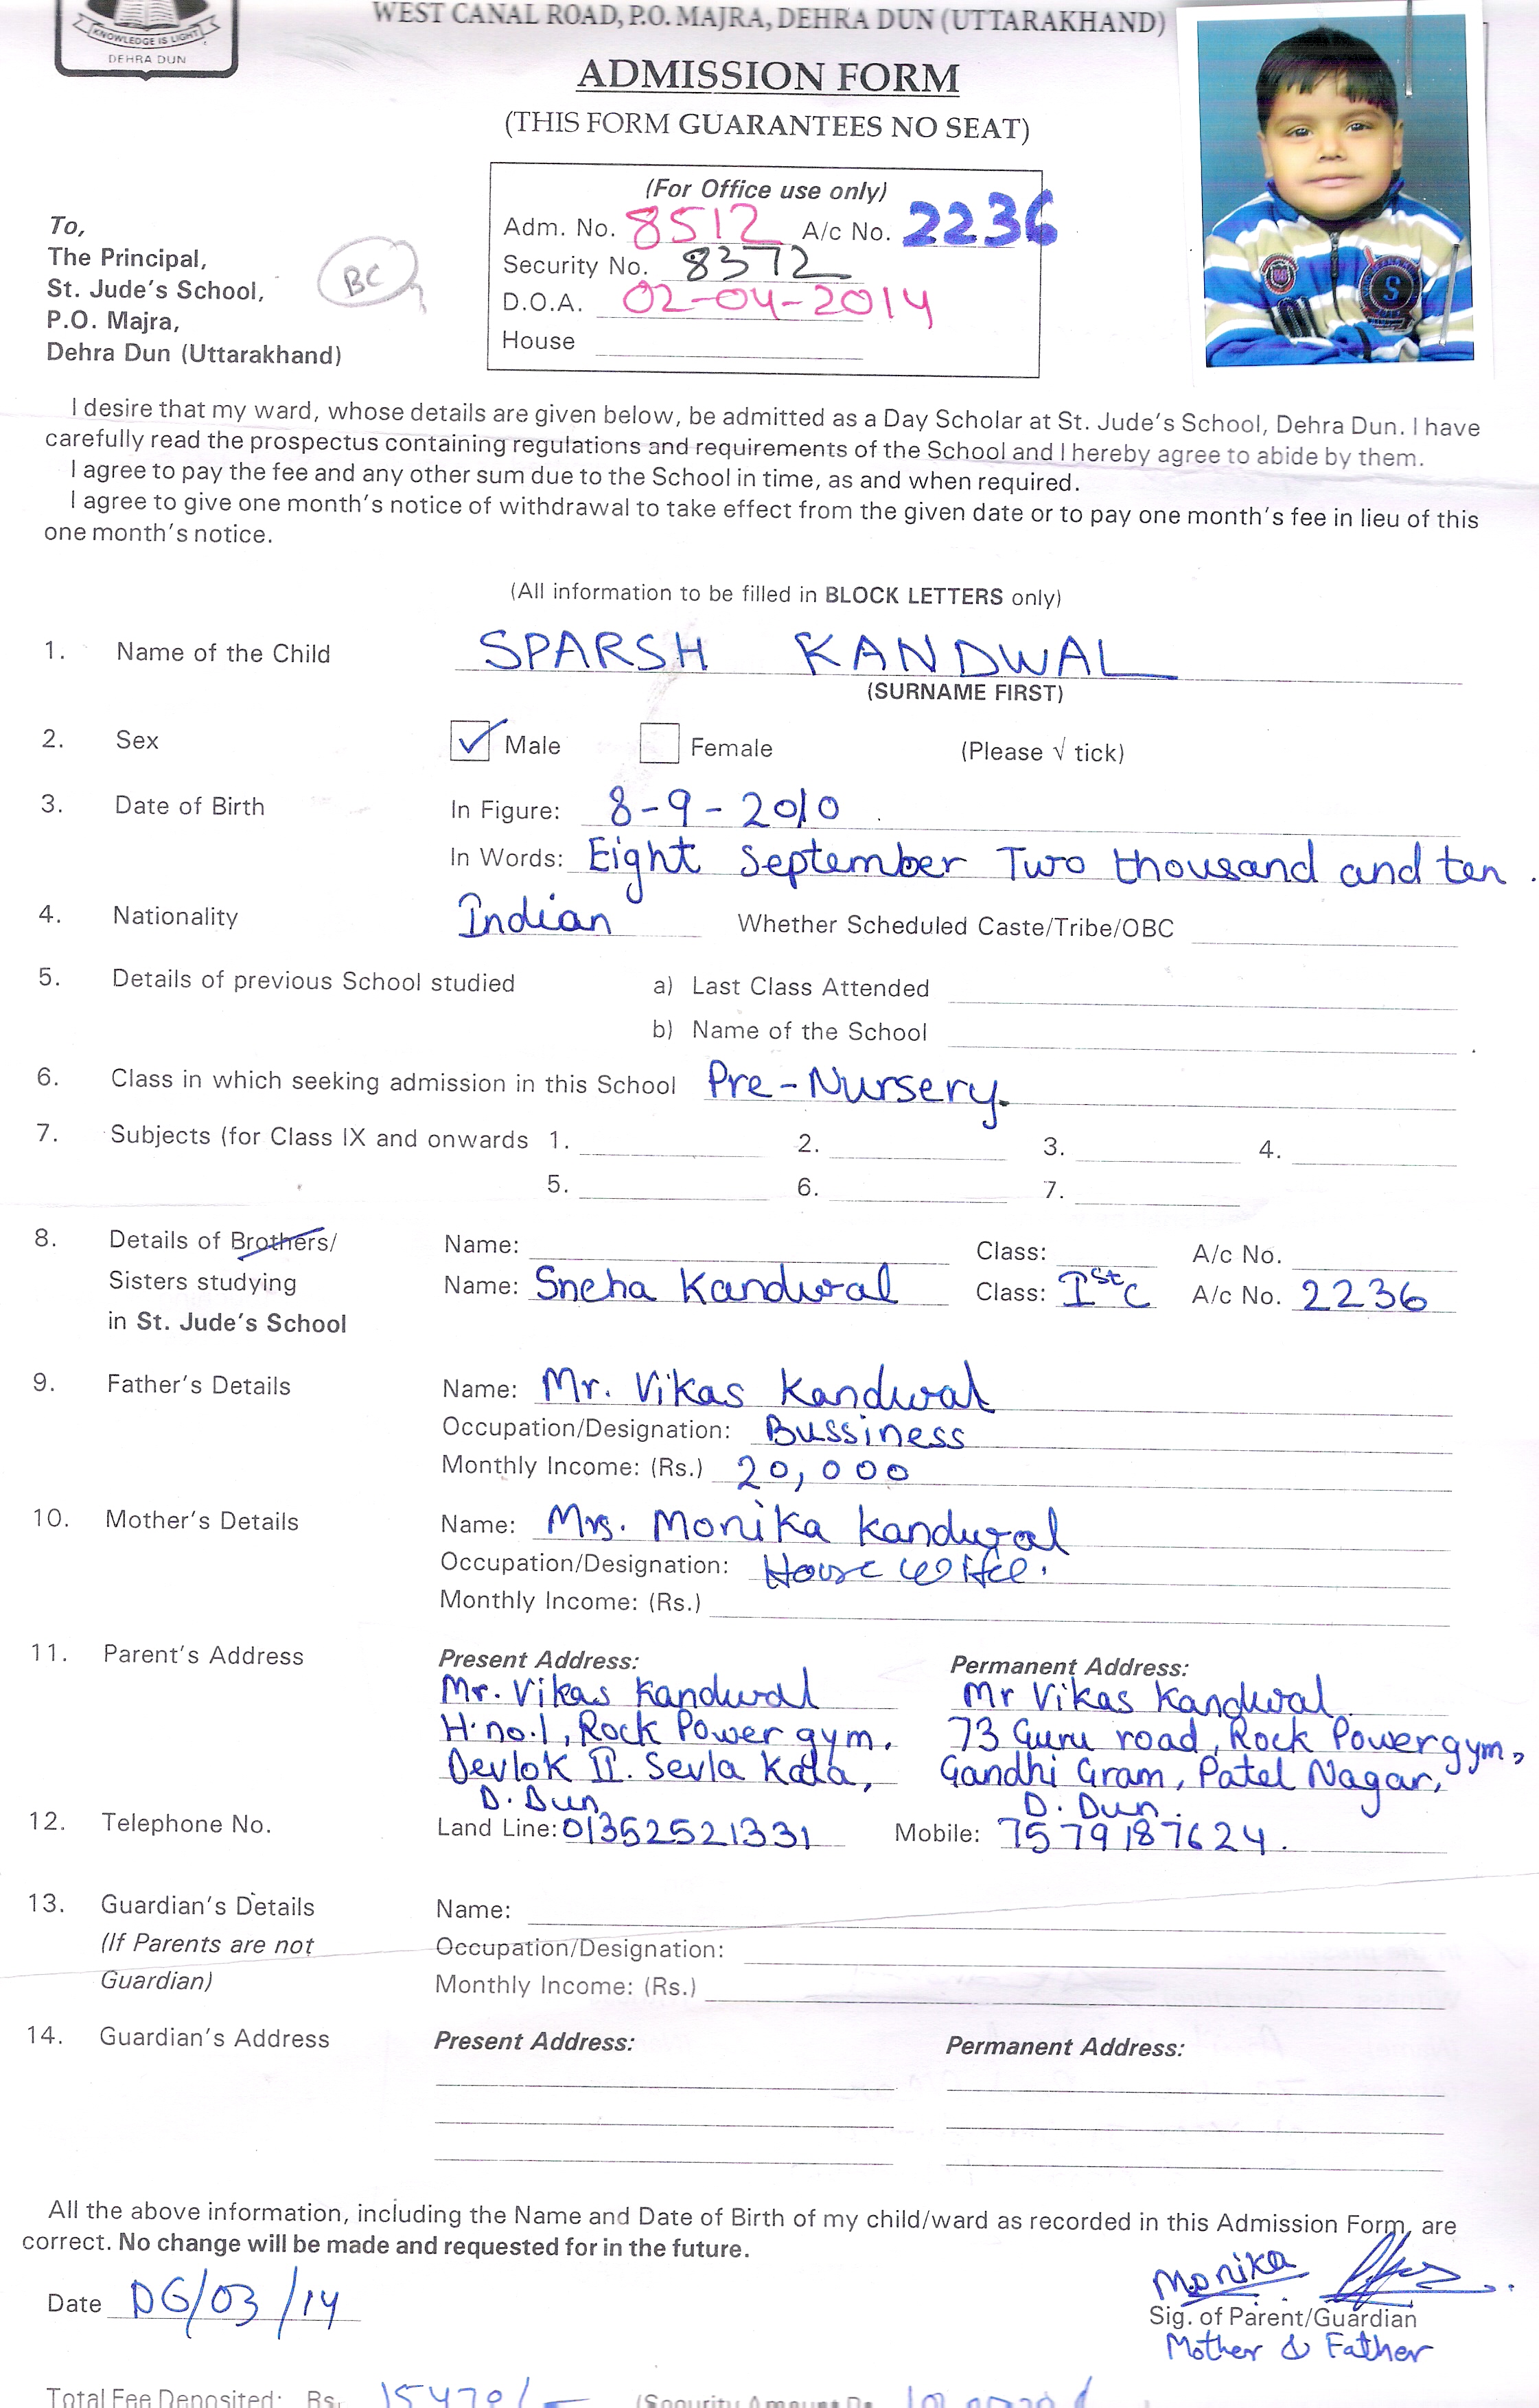 KNOWLEDGE IS LIGHT
DEHRA DUN
WEST CANAL ROAD, P.O. MAJRA, DEHRA DUN (UTTARAKHAND)
ADMISSION FORM
(THIS FORM GUARANTEES NO SEAT)
(For Office use only)
Adm. No. 8512 A/c No. 2236
Security No. 8372
D.O.A. 02-04-2014
House
To,
The Principal,
St. Jude's School,
P.O. Majra,
Dehra Dun (Uttarakhand)
BC
S
I desire that my ward, whose details are given below, be admitted as a Day Scholar at St. Jude's School, Dehra Dun. I have
carefully read the prospectus containing regulations and requirements of the School and I hereby agree to abide by them.
I agree to pay the fee and any other sum due to the School in time, as and when required.
I agree to give one month's notice of withdrawal to take effect from the given date or to pay one month's fee in lieu of this
one month's notice.
(All information to be filled in BLOCK LETTERS only)
1. Name of the Child SPARSH KANDWAL
(SURNAME FIRST)
2. Sex ✓ Male Female (Please √ tick)
3. Date of Birth In Figure: 8-9-2010
In Words: Eight September Two thousand and ten.
4. Nationality Indian Whether Scheduled Caste/Tribe/OBC
5. Details of previous School studied a) Last Class Attended
b) Name of the School
6. Class in which seeking admission in this School Pre-Nursery.
7. Subjects (for Class IX and onwards 1. 2. 3. 4.
5. 6. 7.
8. Details of Brothers/ Name: Class: A/c No.
Sisters studying Name: Sneha Kandwal Class: Ist C A/c No. 2236
in St. Jude's School
9. Father's Details Name: Mr. Vikas Kandwal
Occupation/Designation: Bussiness
Monthly Income: (Rs.) 20,000
10. Mother's Details Name: Mrs. Monika Kandwal
Occupation/Designation: House Wife.
Monthly Income: (Rs.)
11. Parent's Address Present Address: Permanent Address:
Mr. Vikas Kandwal Mr Vikas Kandwal
H.no.1, Rock Power gym. 73 Guru road, Rock Power gym,
Devlok II. Sevla Kala, Gandhi Gram, Patel Nagar,
D. Dun D. Dun.
12. Telephone No. Land Line: 01352521331 Mobile: 7579187624.
13. Guardian's Details Name:
(If Parents are not Occupation/Designation:
Guardian) Monthly Income: (Rs.)
14. Guardian's Address Present Address: Permanent Address:
All the above information, including the Name and Date of Birth of my child/ward as recorded in this Admission Form, are
correct. No change will be made and requested for in the future.
Monika
Date 06/03/14 Sig. of Parent/Guardian
Mother & Father
Total Fee Deposited: Rs.